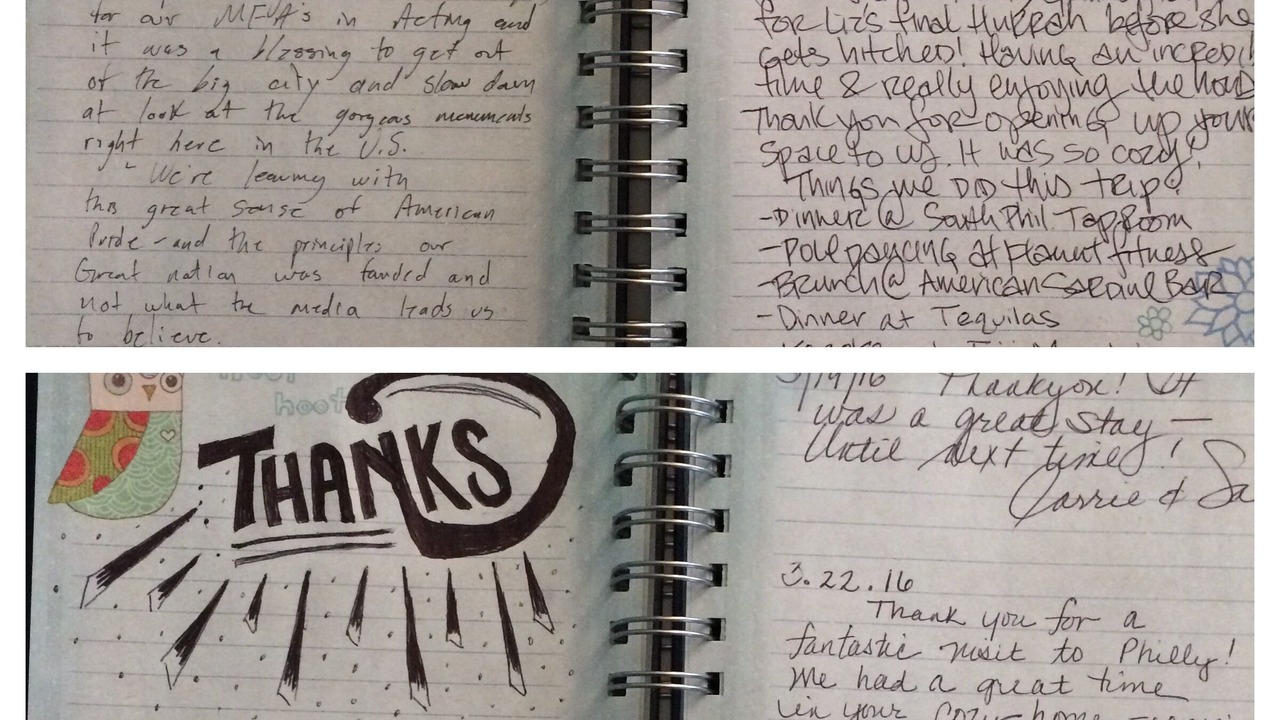 for our MFA's in Acting and
it was a blessing to get out
of the big city and slow down
at look at the gorgeous monuments
right here in the U.S.
We're leaving with
this great sense of American
Pride - and the principles our
Great nation was founded and
not what the media leads us
to believe.
for Liz's final Hurrah before she
gets hitched! Having an incredi
time & really enjoying the
Thank you for opening up your
space to us. It was so cozy!
Things we DID this trip:
-Dinner @ South Phil. Tap Room
-Pole at Planet fitness
-Brunch @ American Sardine Bar
-Dinner at Tequilas
hoot
THANKS
3/19/16 Thankyou! It
was a great stay —
Until next time!
Carrie & Sa
3.22.16
Thank you for a
fantastic visit to Philly!
We had a great time
in your cozy home